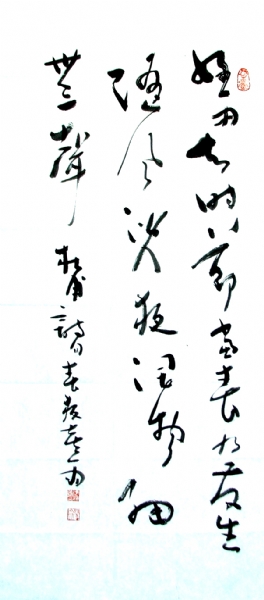 好雨知时節當春乃發生
随風潜入夜潤物細
無聲 杜甫詩春夜喜雨